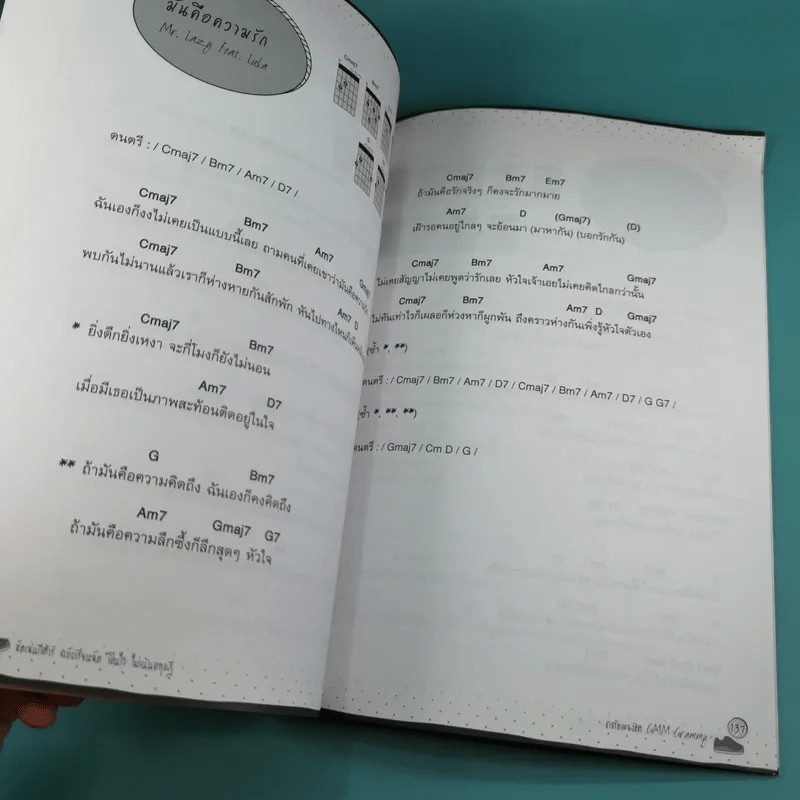 มันคือความรัก
Mr. Lazy feat. Lula
Cmaj7 Bm7
ดนตรี : / Cmaj7 / Bm7 / Am7 / D7 /
Cmaj7 Bm7 Am7 Gmaj7
ฉันเองก็งงไม่เคยเป็นแบบนี้เลย ถามคนที่เคยเขาว่ามันคือความรัก
Cmaj7 Bm7 Am7 D
พบกันไม่นานแล้วเราก็ห่างหายกันสักพัก หันไปทางไหนก็
Cmaj7 Bm7
* ยิ่งดึกยิ่งเหงา จะกี่โมงก็ยังไม่นอน
Am7 D7
เมื่อมีเธอเป็นภาพสะท้อนติดอยู่ในใจ
G Bm7
** ถ้ามันคือความคิดถึง ฉันเองก็คงคิดถึง
Am7 Gmaj7 G7
ถ้ามันคือความลึกซึ้งก็ลึกสุดๆ หัวใจ
Cmaj7 Bm7 Em7
ถ้ามันคือรักจริงๆ ก็คงจะรักมากมาย
Am7 D (Gmaj7) (D)
เฝ้ารอคนอยู่ไกลๆ จะย้อนมา (มาหากัน) (บอกรักกัน)
Cmaj7 Bm7 Am7 Gmaj7
ไม่เคยสัญญาไม่เคยพูดว่ารักเลย หัวใจเจ้าเอยไม่เคยคิดไกลกว่านั้น
Cmaj7 Bm7 Am7 D Gmaj7
ไม่ทันเท่าไรก็เผลอก็ห่วงหาก็ผูกพัน ถึงคราวห่างกันเพิ่งรู้หัวใจตัวเอง
(ซ้ำ *, **)
ดนตรี : / Cmaj7 / Bm7 / Am7 / D7 / Cmaj7 / Bm7 / Am7 / D7 / G G7 /
(ซ้ำ *, **, **)
ดนตรี : / Gmaj7 / Cm D / G /
GMM Grammy
137